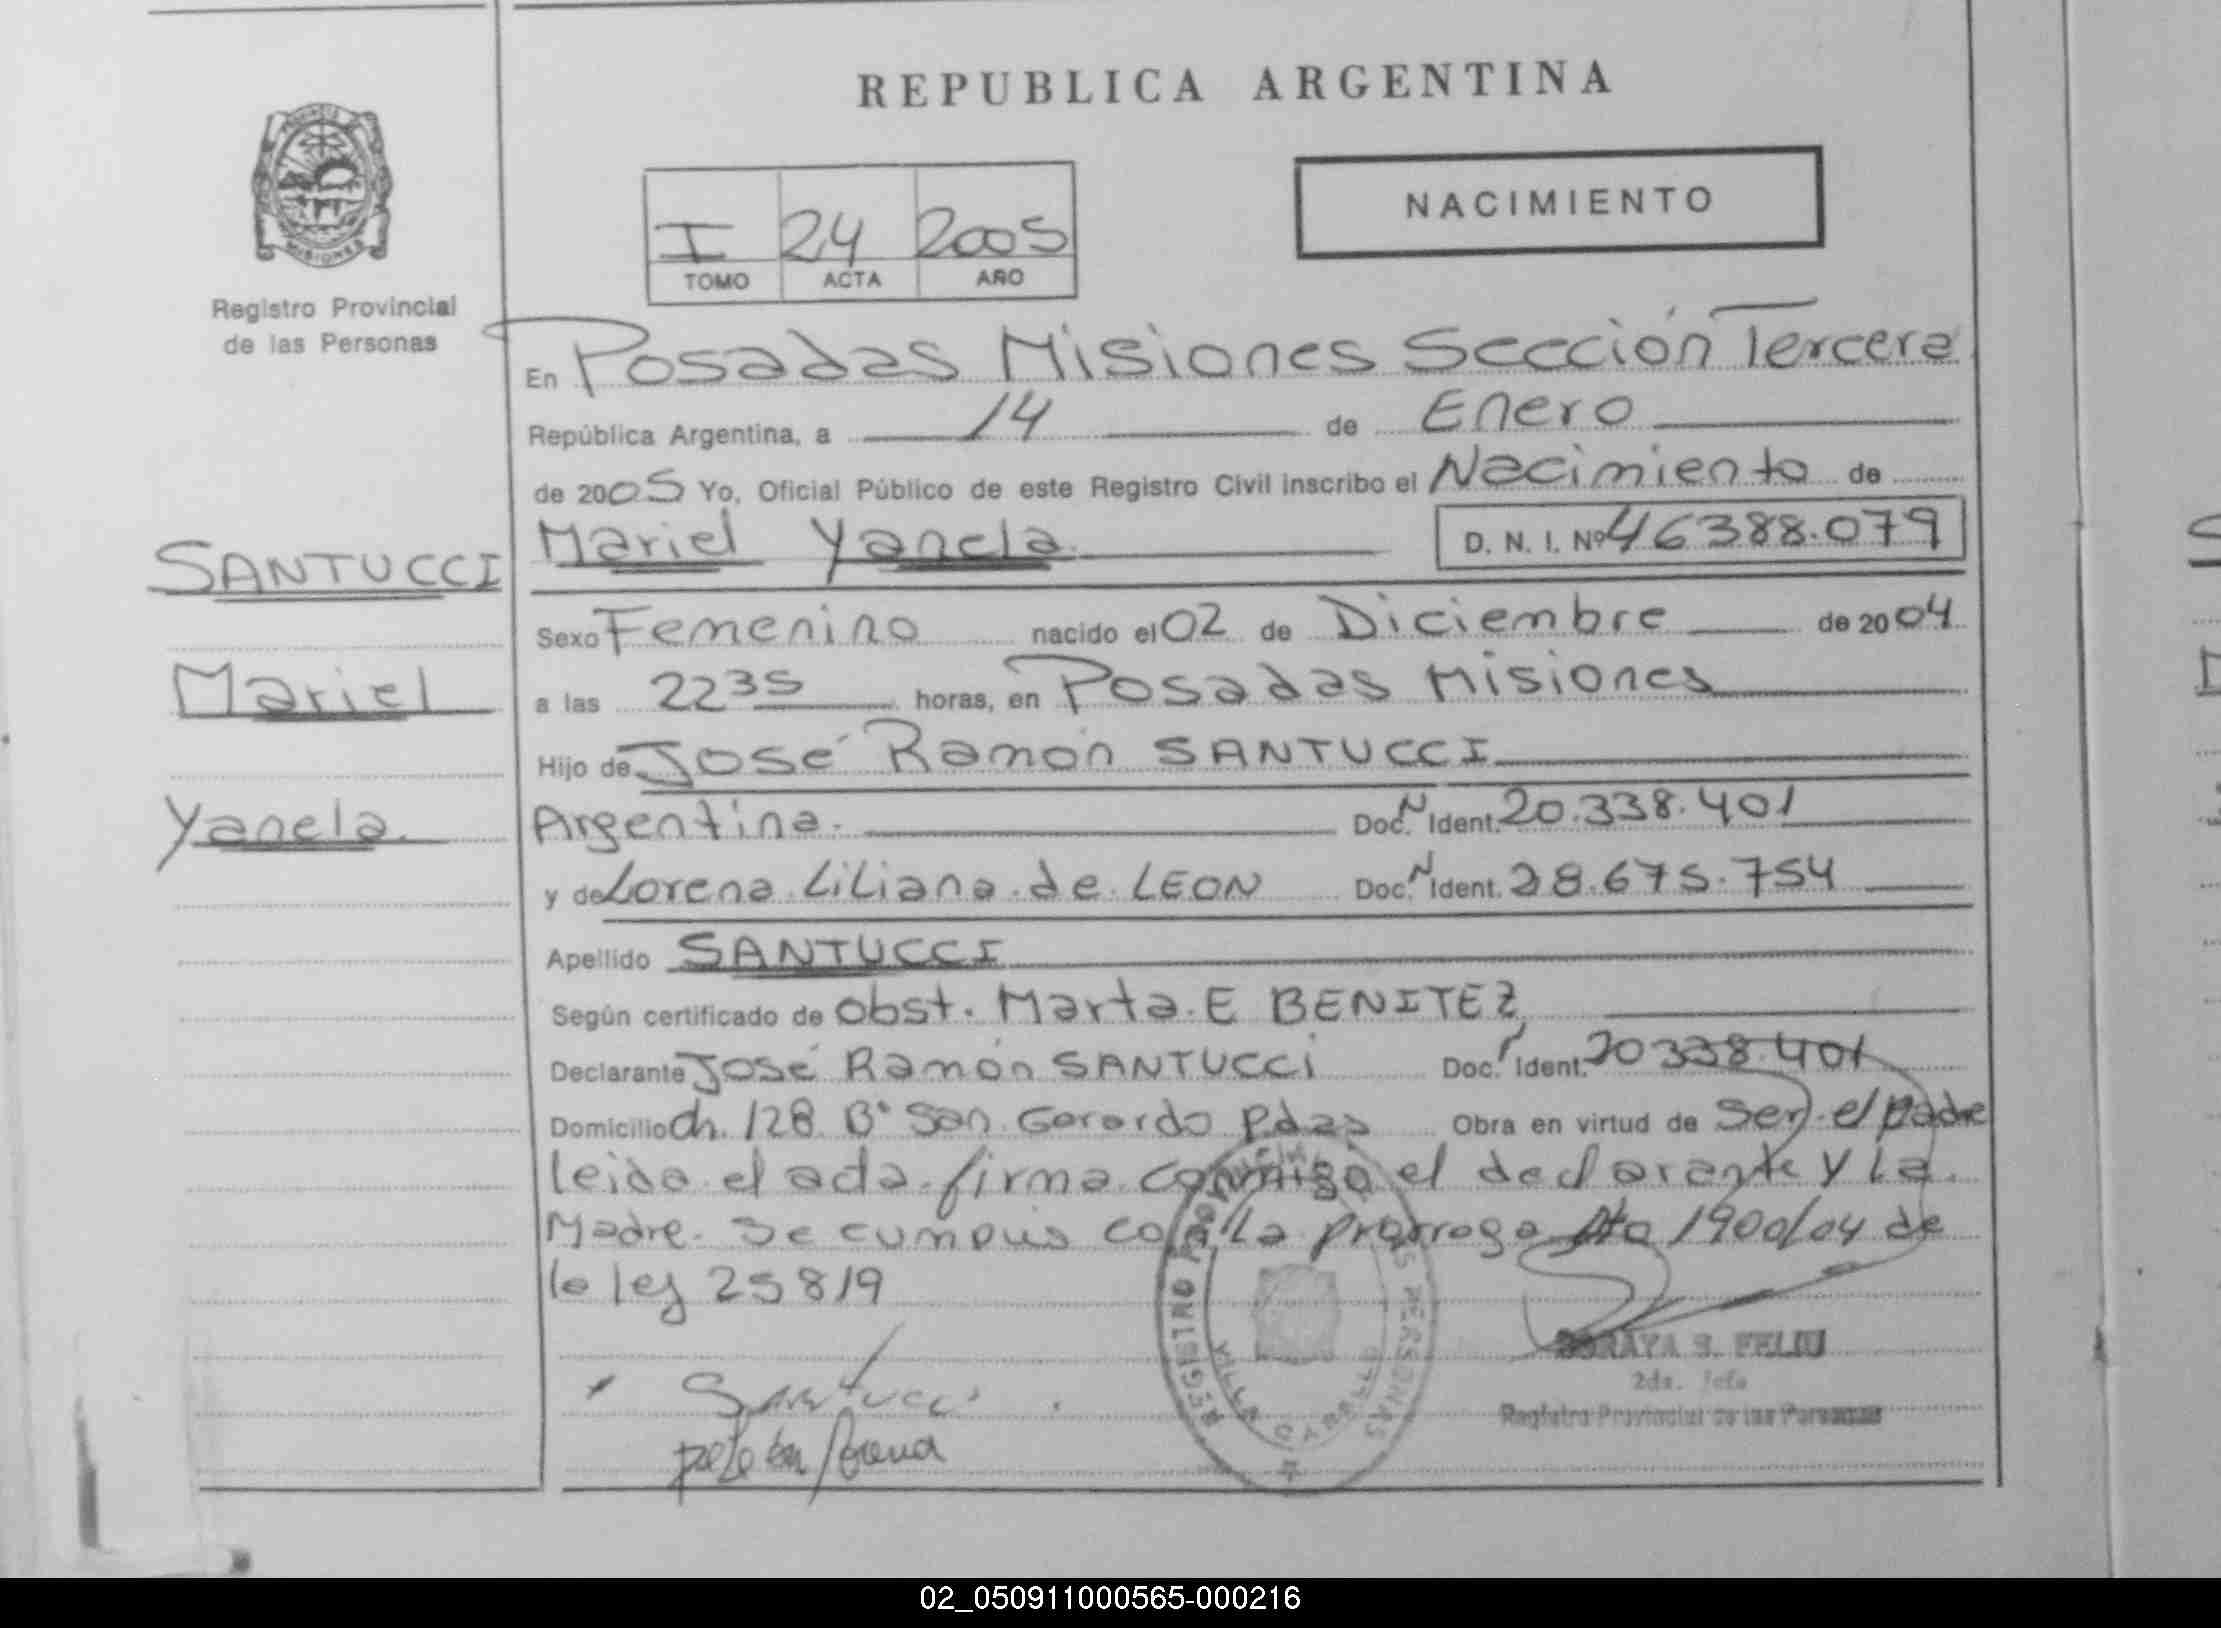 REPUBLICA ARGENTINA
PROVINCIA DE
MISIONES
Registro Provincial
de las Personas
I 24 2005
TOMO ACTA AÑO
NACIMIENTO
En Posadas Misiones Sección Tercera
República Argentina, a 14 de Enero
de 2005 Yo, Oficial Público de este Registro Civil inscribo el Nacimiento de
SANTUCCI
Mariel Yanela
D. N. I. Nº 46388.079
Sexo Femenino nacido el 02 de Diciembre de 2004
Mariel
a las 22 35 horas, en Posadas Misiones
Hijo de José Ramón SANTUCCI
Yanela
Argentina. Doc. N Ident. 20.338.401
y de Lorena Liliana de LEON Doc. N Ident. 28.675.754
Apellido SANTUCCI
Según certificado de Obst. Marta E BENITEZ
Declarante José Ramón SANTUCCI Doc. Ident. 20338.401
Domicilio Ch. 128 Bº San Gerardo Pdas Obra en virtud de ser el padre
leida el acta firma conmigo el declarante y la
Madre. Se cumplis con la prorroga Dto 1900/04 de
la ley 25819
Santucci
SORAYA S. FELIU
2da. Jefa
Registro Provincial de las Personas
REGISTRO PROVINCIAL DE LAS PERSONAS
VILLA CABELLO
02_050911000565-000216